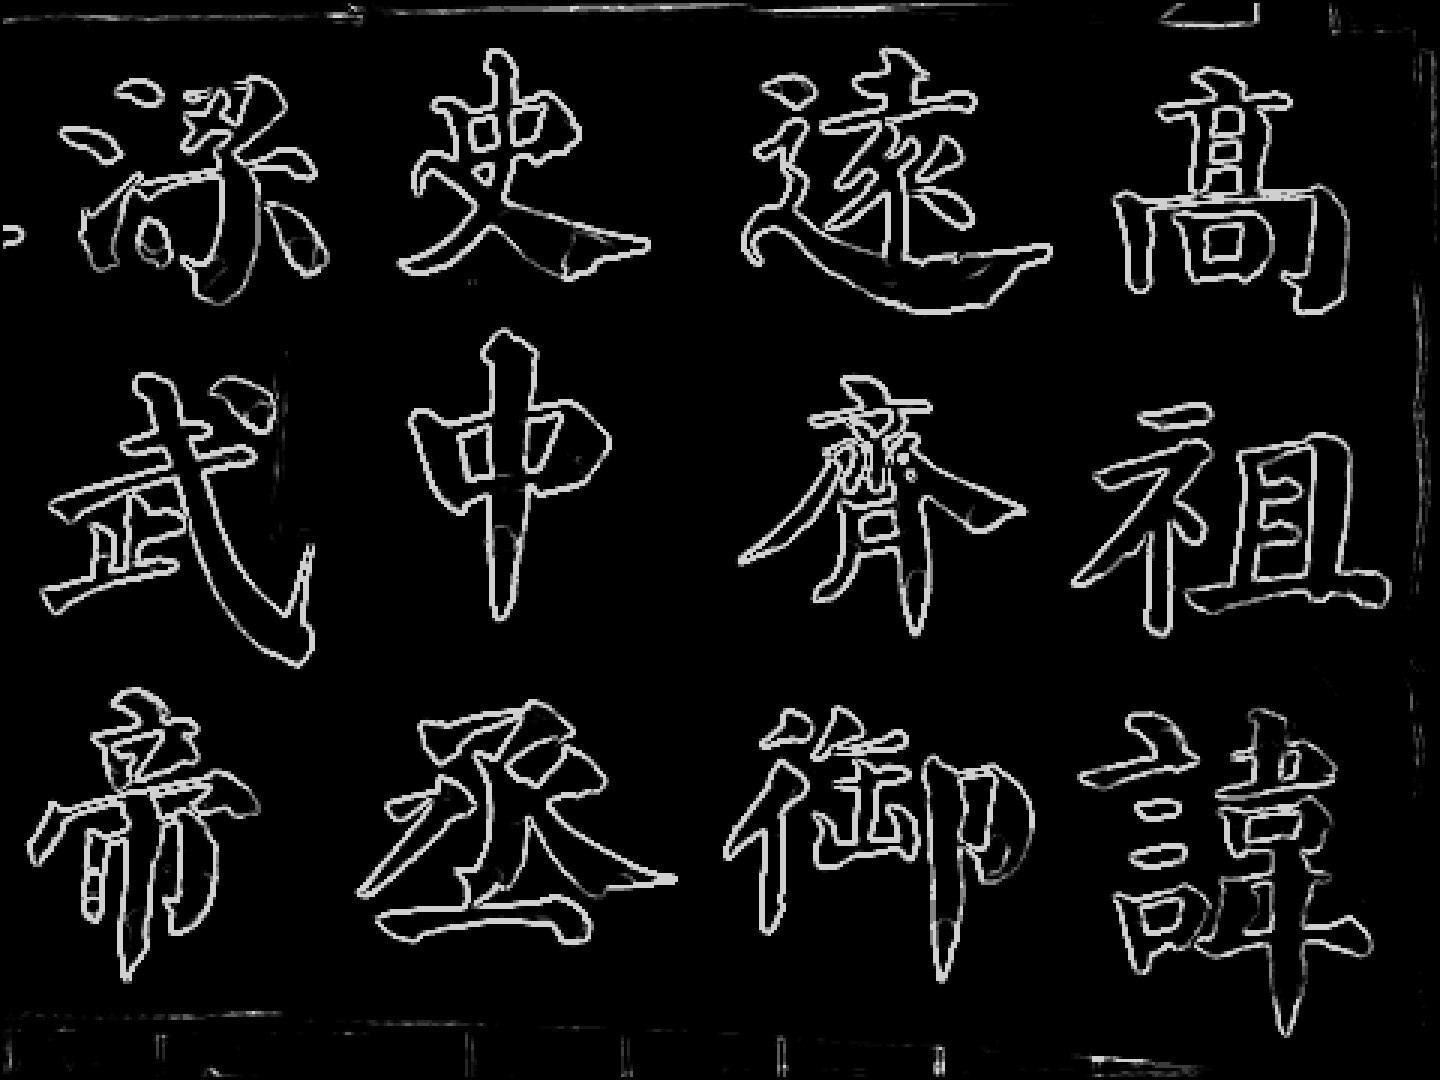 高祖諱
遠齊御
史中丞
梁武帝